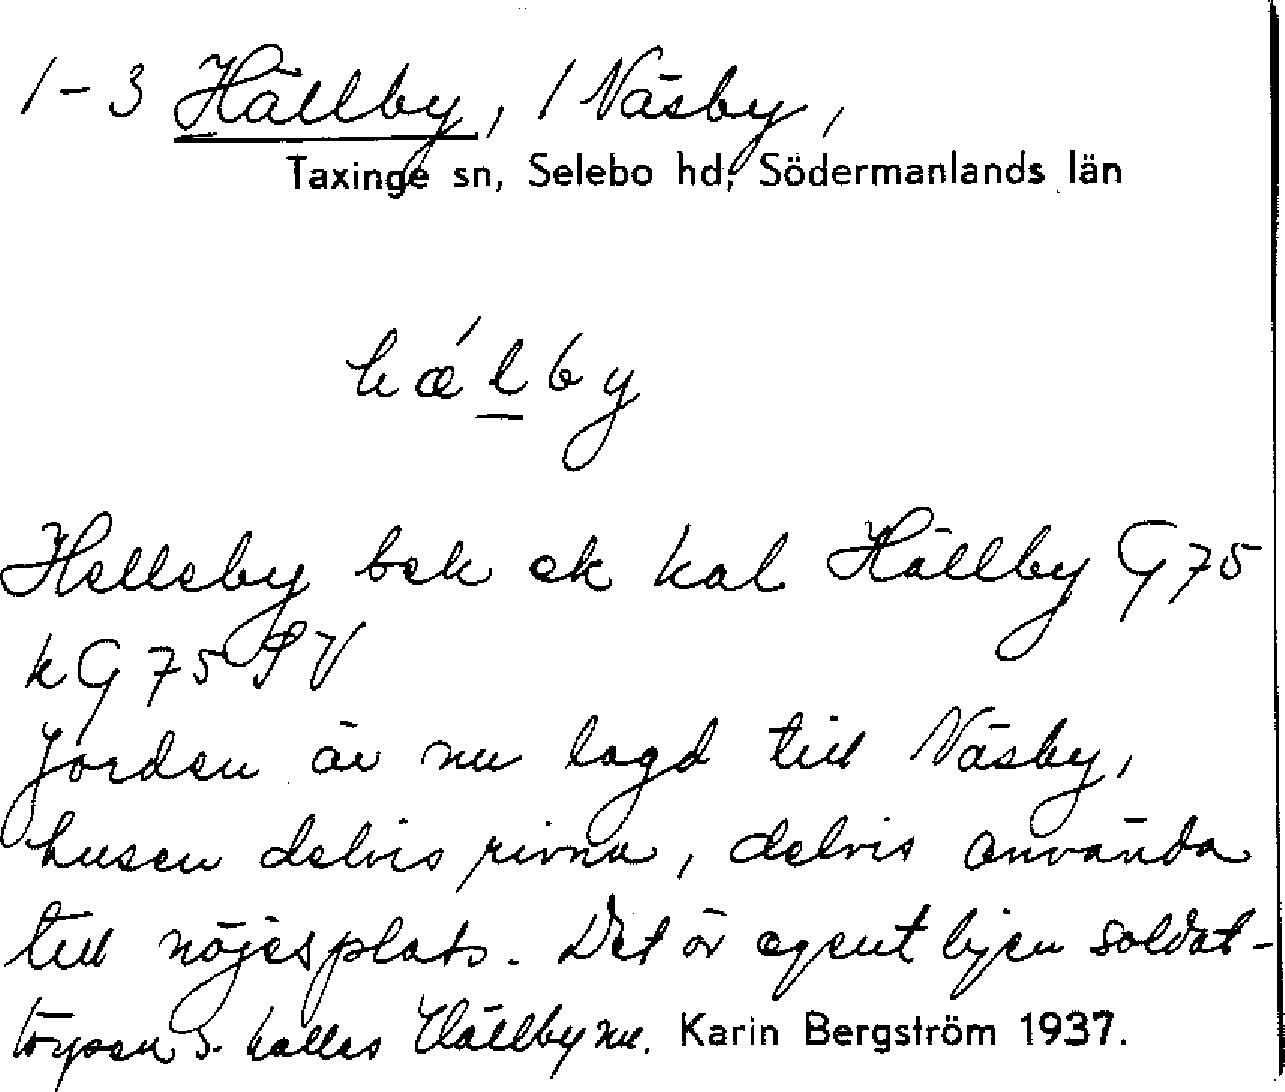 1-3 Hällby, 1 Näsby,
Taxinge sn, Selebo hd, Södermanlands län
hǽlby
Helleby bek ek kal Hällby G 75
k G 75 S V
Jorden är nu lagd till Näsby,
husen delvis rivna, delvis använda
till nöjesplats. Det är egentligen soldat-
torpen s. kallas Hällby nu. Karin Bergström 1937.